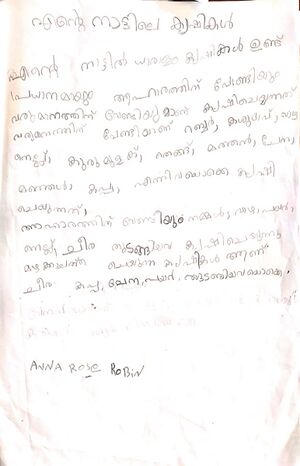 എന്റെ നാട്ടിലെ കൃഷികൾ
എന്റെ നാട്ടിൽ ധാരാളം കൃഷികൾ ഉണ്ട്
പ്രധാനമായും ആഹാരത്തിന് വേണ്ടിയും
വരുമാനത്തിന് വേണ്ടിയുമാണ് കൃഷിചെയ്യുന്നത്
വരുമാനത്തിന് വേണ്ടിയാണ് റബ്ബർ, കശുമാവ്,
നെല്ല്, കുരുമുളക്, തെങ്ങ്, മത്തൻ, ചേന,
മഞ്ഞൾ, കപ്പ, എന്നിവയൊക്കെ കൃഷി
ചെയ്യുന്നത്,
ആഹാരത്തിന് വേണ്ടിയും വാഴ, പയർ,
നെല്ല്, ചീര തുടങ്ങിയവ കൃഷിചെയ്യുന്നു
മഴക്കാലത്ത് ചെയ്യുന്ന കൃഷികൾ ആണ്
ചീര കപ്പ, ചേന, പയർ, തുടങ്ങിയവയൊക്കെ.
ANNA ROSE ROBIN